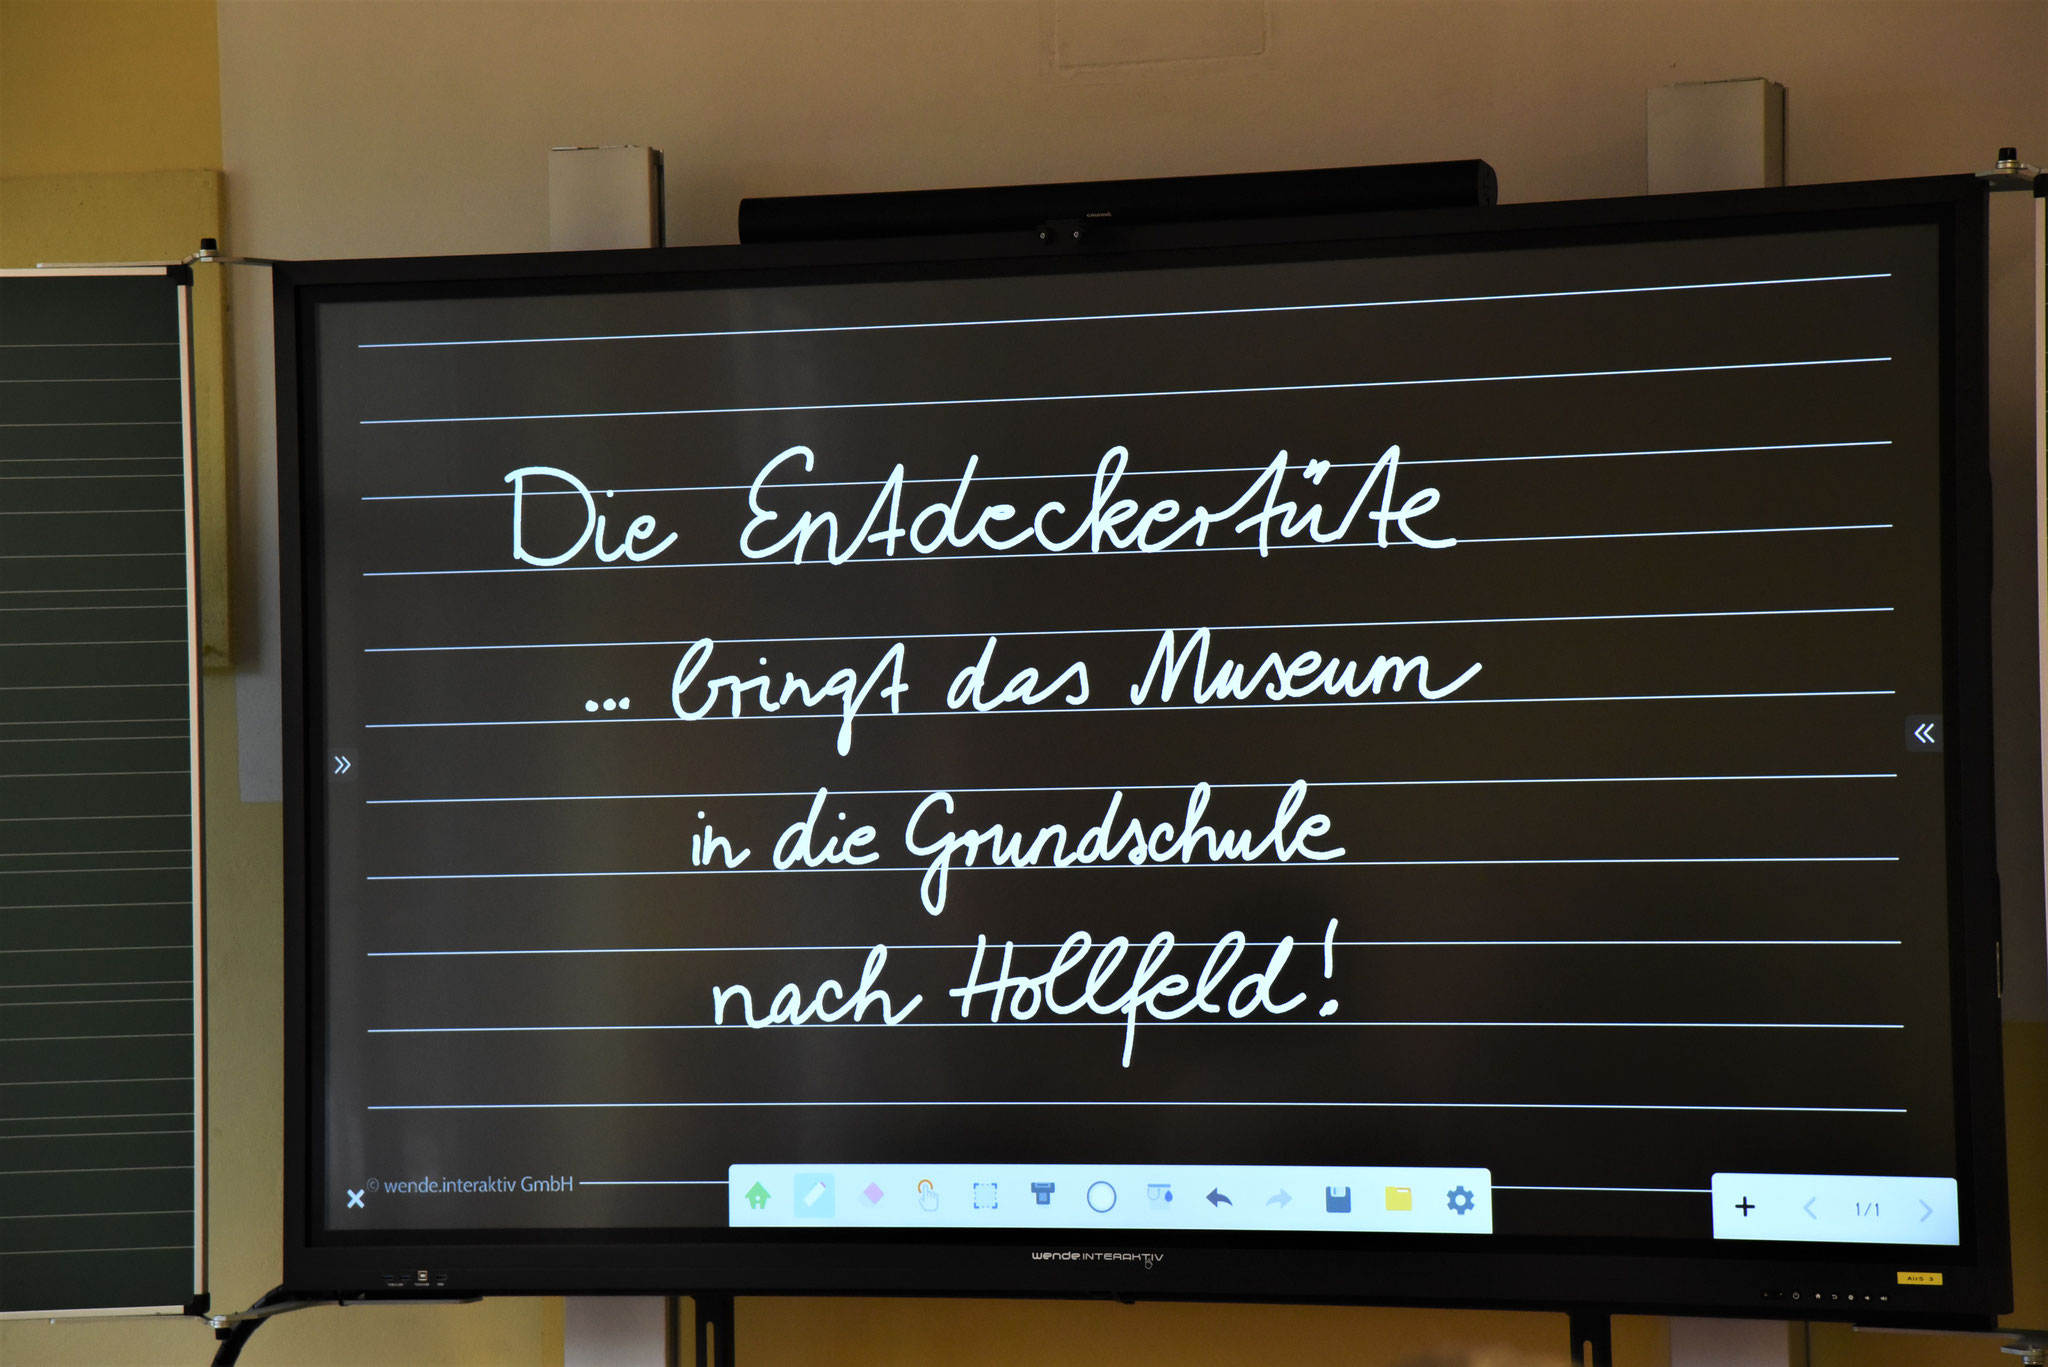 GRUNDIG
Die Entdeckertüte
... bringt das Museum
in die Grundschule
nach Hollfeld!
© wende.interaktiv GmbH
1/1
wende.INTERAKTIV